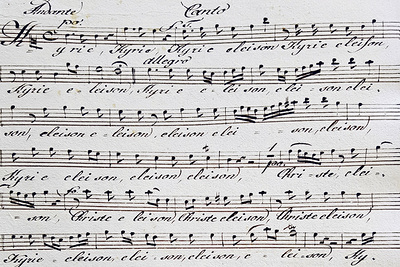 Andante Canto
po:
Kyrie, Kyrie, Kyrie eleison Kyrie eleison,
allegro
Kyrie eleison, Kyrie eleison, elei=son elei.
son, eleison e=leison, eleison elei=son, eleison,
Kyrie eleison, eleison, eleison, Chri=ste, elei=
=son, Christe eleison, Christe eleison, Christe eleison,
Kyrie=eleison, eleison, eleison, e=leison, Ky.